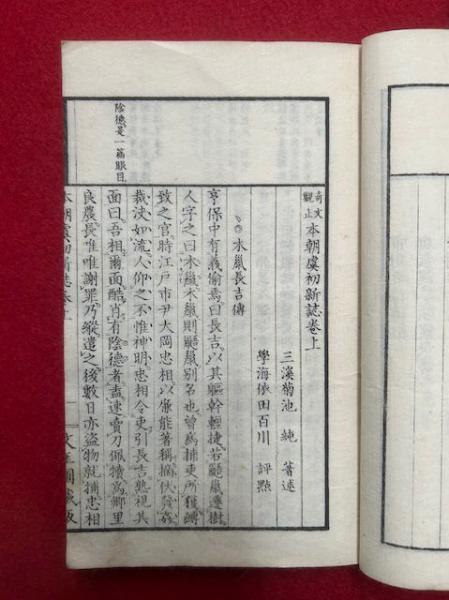 奇文觀止 本朝虞初新誌卷上
三溪菊池 純 著述
學海依田百川 評點
木鼠長吉傳
享保中有義偷焉曰長吉以其軀幹輕捷若鼯鼠遷樹
人字之曰木鼠木鼠則鼯鼠別名也曾爲捕吏所獲縛
致之官時江戶市尹大岡忠相以廉能著稱摘伏發姦
裁決如流人仰之不惟神明忠相令吏引長吉熟視其
面曰吾相爾面酷肖有陰德者盍速賣刀佩犢爲鄉里
良農長唯唯謝罪乃縱遣之後數日亦盜物就捕忠相
陰德是一篇眼目
本朝虞初新誌卷上